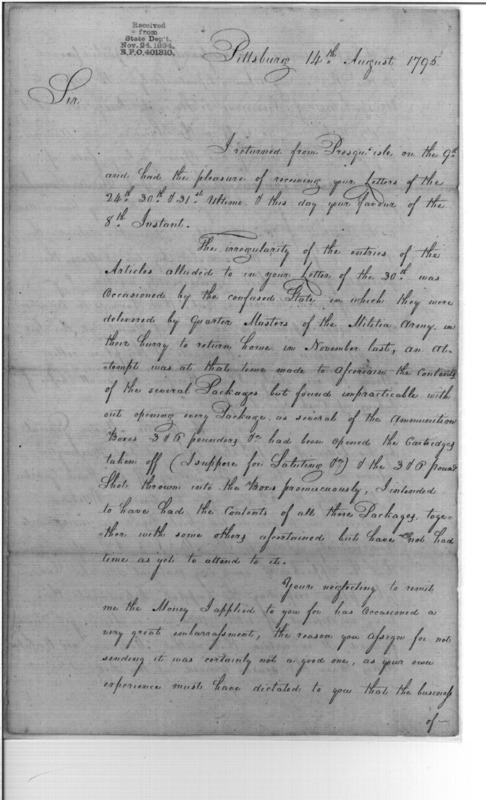 Received
from
State Dep't.
Nov. 24, 1894.
R.P.O. 401310.
Pittsburg 14th August 1795
Sir
I returned from Presqu'isle on the 9th
and had the pleasure of receiving your Letters of the
24th 30th & 31st Ultimo & this day your favour of the
8th Instant.
The irregularity of the entries of the
Articles alluded to in your Letter of the 30th was
Occasioned by the confused State in which they were
delivered by Quarter Masters of the Militia Army in
their hurry to return home in November last, an at-
-tempt was at that time made to ascertain the Contents
of the several Packages but found impracticable with
out opening every Package, as several of the Ammunition
Boxes 3 & 6 pounders had been opened the Cartridges
taken off (I suppose for Saluting) & the 3 & 6 pound
Shot thrown into the Boxes promiscuously, I intended
to have had the Contents of all those Packages, toge-
-ther with some others ascertained but have not had
time as yet to attend to it.
Your neglecting to remit
me the Money I applied to you for has Occasioned a
very great embarrassment, the reason you assign for not
sending it was certainly not a good one, as your own
experience must have dictated to you that the business
of—